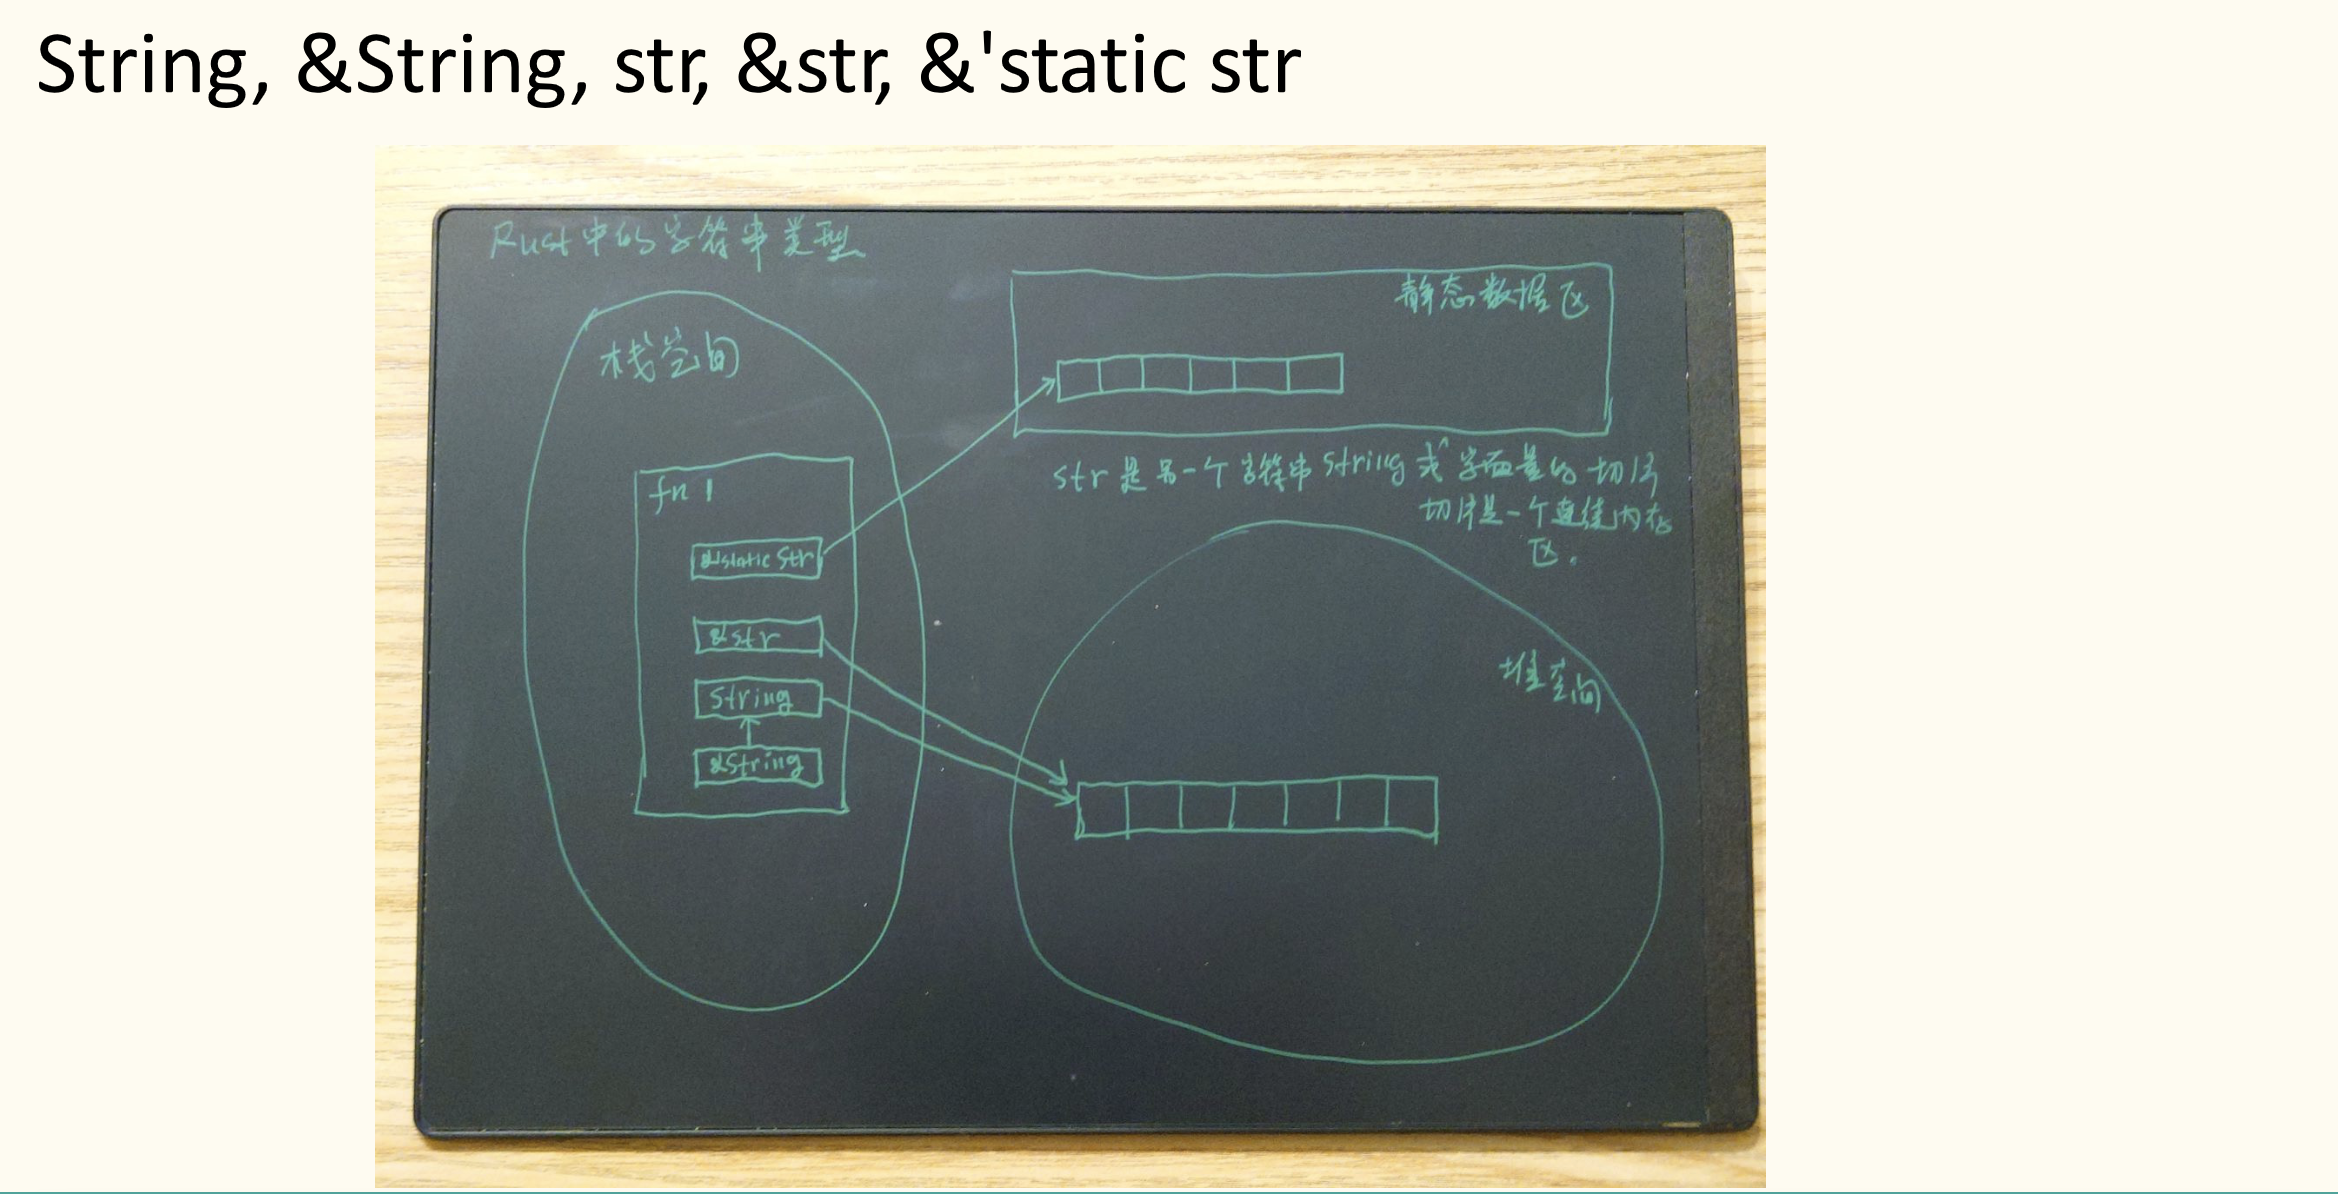 String, &String, str, &str, &'static str
Rust中的字符串类型
栈空间
静态数据区
fn 1
&'static str
&str
String
&String
str是另一个字符串String或字面量的切片
切片是一个连续内存
区。
堆空间